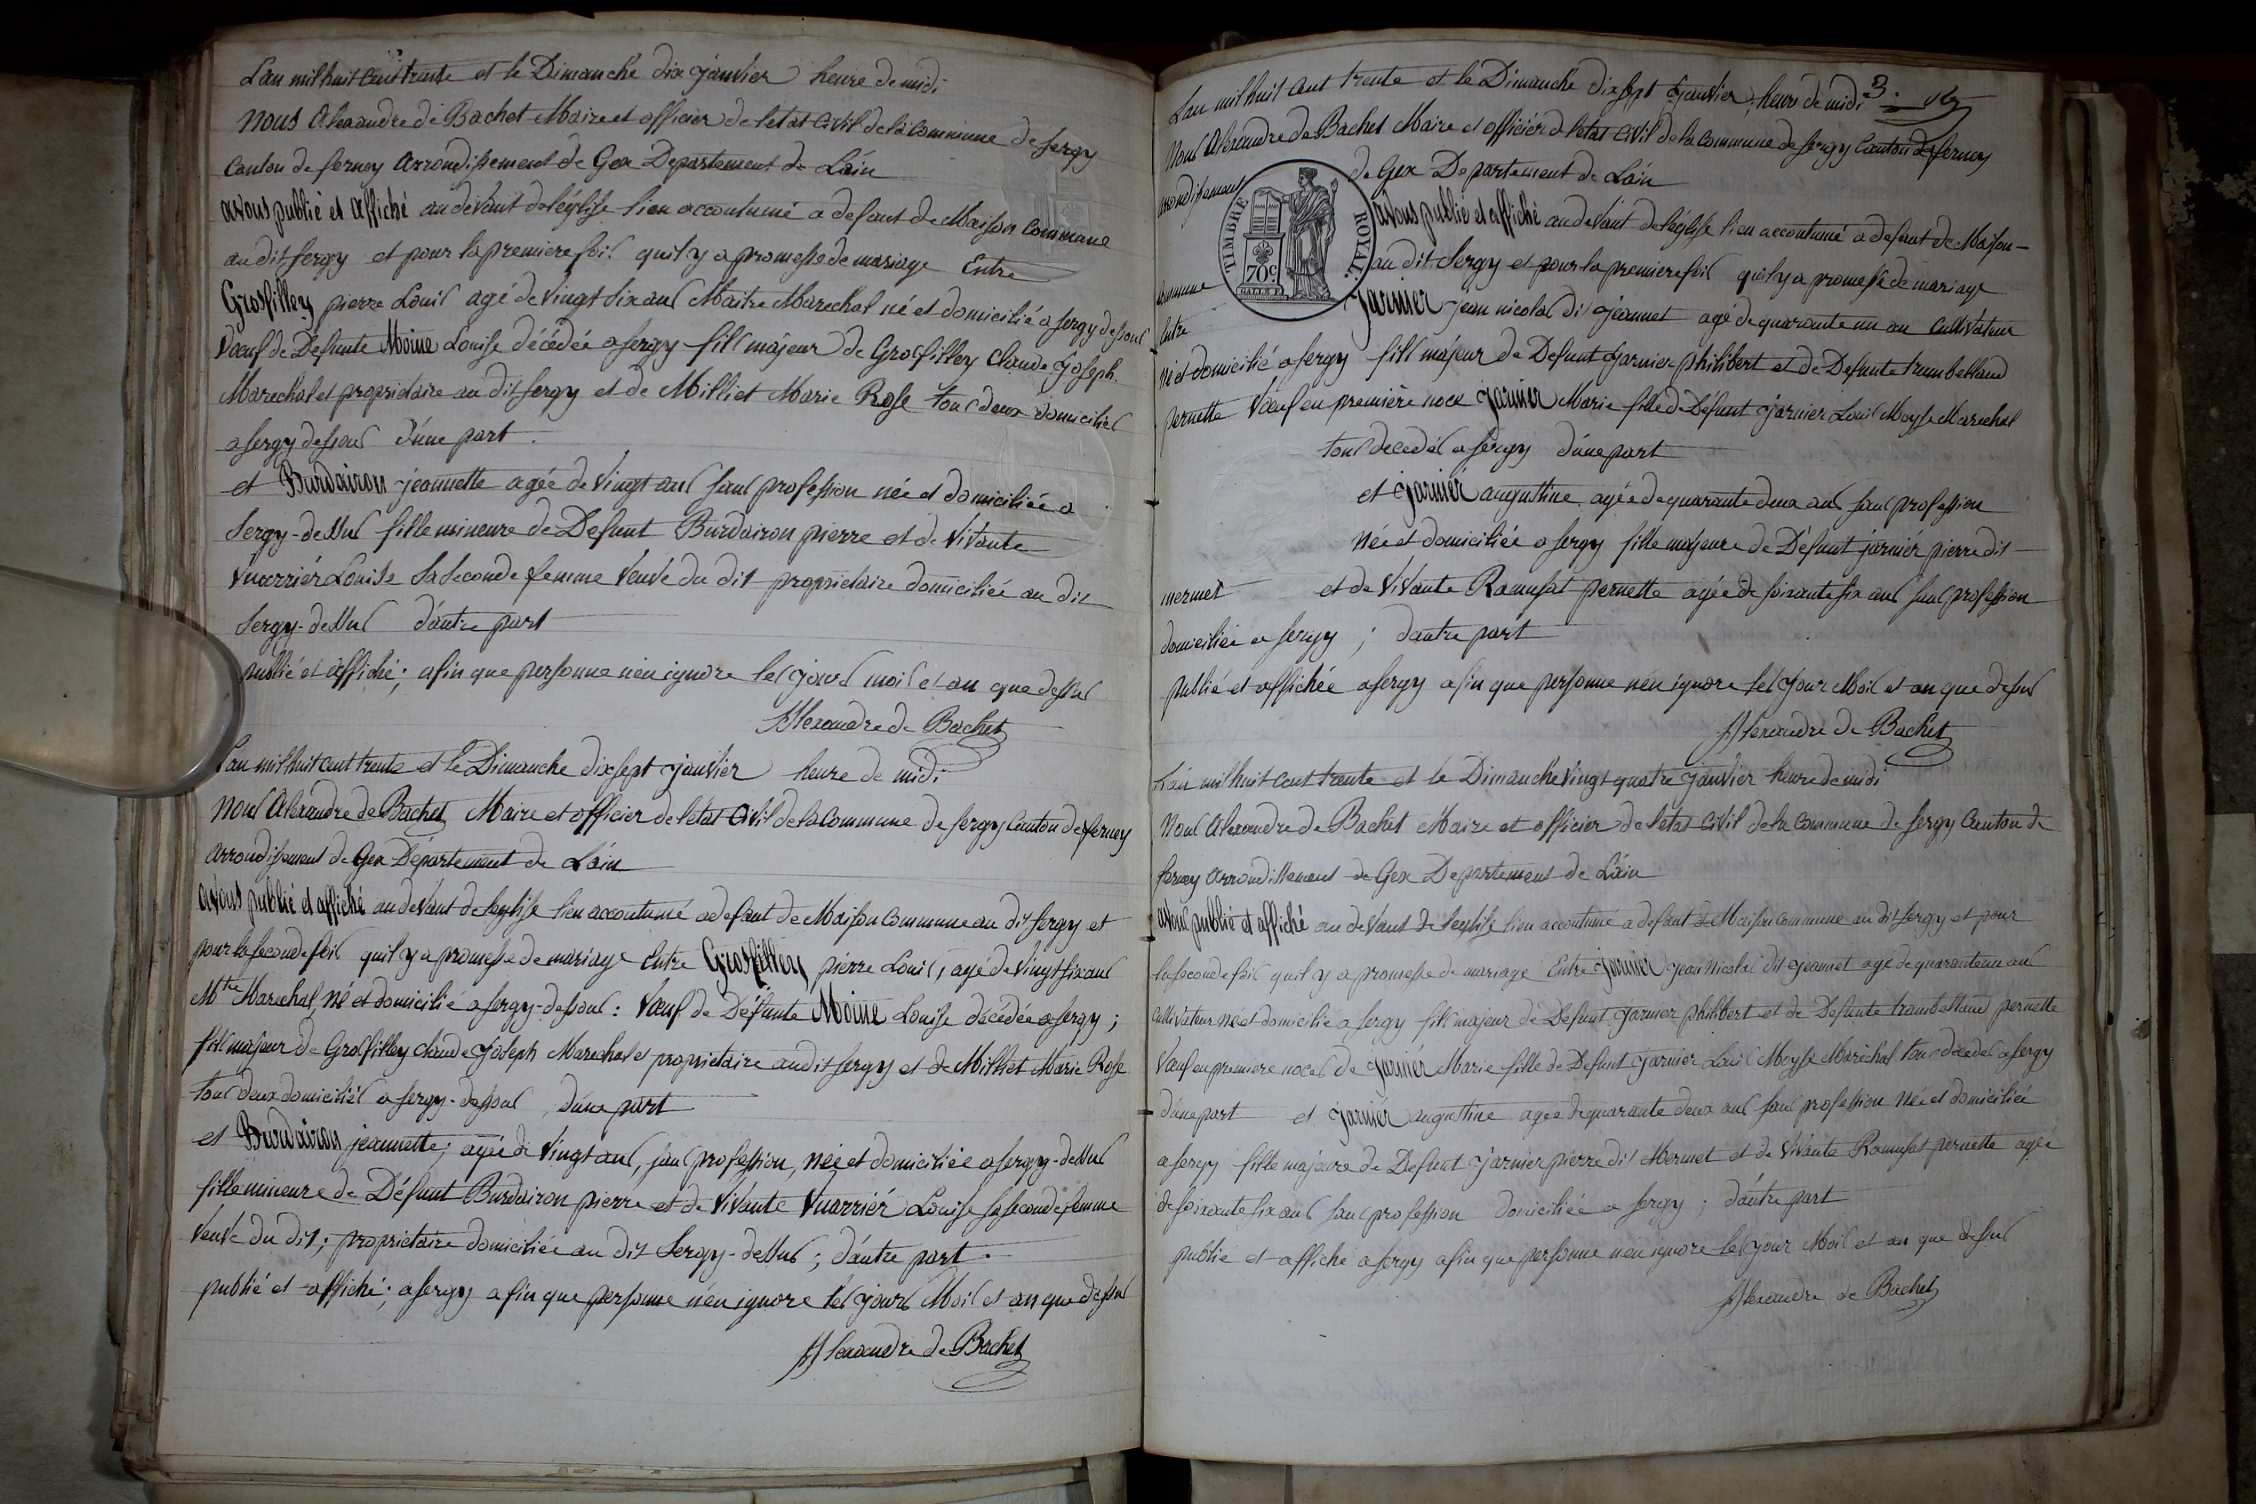 L'an mil huit cent trente et le Dimanche dix janvier heure de midi
Nous Alexandre de Bachet Maire et officier de l'état civil de la Commune de Sergy
Canton de ferney Arrondissement de Gex Departement de L'ain
avons publié et affiché au devant de l'église lieu accoutumé a defaut de Maison Commune
au dit Sergy et pour la premiere fois qu'il y a promesse de mariage Entre
Grosfilley pierre Louis agé de vingt six ans Maitre Marechal né et domicilié a Sergy dessous
Vœuf de Defunte Moine Louise décédée a Sergy fils majeur de Grosfilley Claude Joseph
Marechal et propriétaire au dit Sergy et de Milliet Marie Rose tous deux domiciliés
a Sergy dessous d'une part.
et Burdairon jeannette agée de vingt ans sans profession née et domiciliée a
Sergy-dessus fille mineure de Defunt Burdairon pierre et de vivante
Vuarrier Louise sa seconde femme veuve du dit propriétaire domiciliée au dit
Sergy-dessus d'autre part
publié et affiché; afin que personne n'en ignore les jours mois et an que dessus
Alexandre de Bachet
L'an mil huit cent trente et le Dimanche dix sept janvier heure de midi
Nous Alexandre de Bachet Maire et officier de l'état Civil de la Commune de Sergy Canton de ferney
Arrondissement de Gex Département de L'ain
avons publié et affiché au devant de l'eglise lieu accoutumé a defaut de Maison Commune au dit Sergy et
pour la seconde fois qu'il y a promesse de mariage Entre Grosfilley pierre Louis, agé de vingt six ans
Mtre Marechal, né et domicilié a Sergy-dessous: Vœuf de Défunte Moine Louise décédée a Sergy;
fils majeur de Grosfilley Claude Joseph Marechal et propriétaire au dit Sergy et de Milliet Marie Rose
tous deux domiciliés a Sergy-dessous d'une part
et Burdairon jeannette, agée de vingt ans, sans profession, née et domiciliée a Sergy-dessus
fille mineure de Défunt Burdairon pierre et de vivante Vuarriér Louise sa seconde femme
veuve du dit; propriétaire domiciliée au dit Sergy-dessus; d'autre part.
publié et affiché; a Sergy afin que personne n'en ignore les jours Mois et an que dessus
Alexandre de Bachet
3.
L'an mil huit cent trente et le Dimanche dix sept Janvier, heure de midi
Nous Alexandre de Bachet Maire et officier de l'état civil de la Commune de Sergy Canton de ferney
arrondissement de Gex Departement de L'ain
TIMBRE ROYAL
70c
avons publié et affiché au devant de l'église lieu accoutumé a defaut de Maison
commune au dit Sergy et pour la premiere fois qu'il y a promesse de mariage
Entre Jarnier jean nicolas dit jeannet agé de quarante un an cultivateur
né et domicilié a Sergy fils majeur de Defunt Jarnier philibert et de Defunte trambelland
pernette Vœuf en première noce Jarnier Marie fille de Défunt Jarnier Louis Moyse Marechal
tous décédés a Sergy d'une part
et Jarnier augustine agée de quarante deux ans sans profession
née et domiciliée a Sergy fille majeure de Défunt jarnier pierre dit
mermet et de vivante Ramusat pernette agée de soixante six ans sans profession
domiciliée a Sergy; d'autre part
publié et affichée a Sergy afin que personne n'en ignore les jour Mois et an que dessus
Alexandre de Bachet
L'an mil huit cent trente et le Dimanche vingt quatre janvier heure de midi
Nous Alexandre de Bachet Maire et officier de l'état Civil de la Commune de Sergy Canton de
ferney Arrondissement de Gex Departement de L'ain
avons publié et affiché au devant de l'eglise lieu accoutumé a defaut de Maison commune au dit Sergy et pour
la seconde fois qu'il y a promesse de mariage Entre Jarnier Jean Nicolas dit jeannet agé de quarante un ans
cultivateur né et domicilié a Sergy fils majeur de Defunt Jarnier philibert et de Defunte trambelland pernette
Vœuf en premiere noces de Jarnier Marie fille de Defunt Jarnier Louis Moyse Maréchal tous décédés a Sergy
d'une part et Jarnier augustine agée de quarante deux ans sans profession née et domiciliée
a Sergy fille majeure de Defunt Jarnier pierre dit Mermet et de vivante Ramusat pernette agée
de soixante six ans sans profession domiciliée a Sergy; d'autre part
publié et affiché a Sergy afin que personne n'en ignore les jour Mois et an que dessus
Alexandre de Bachet